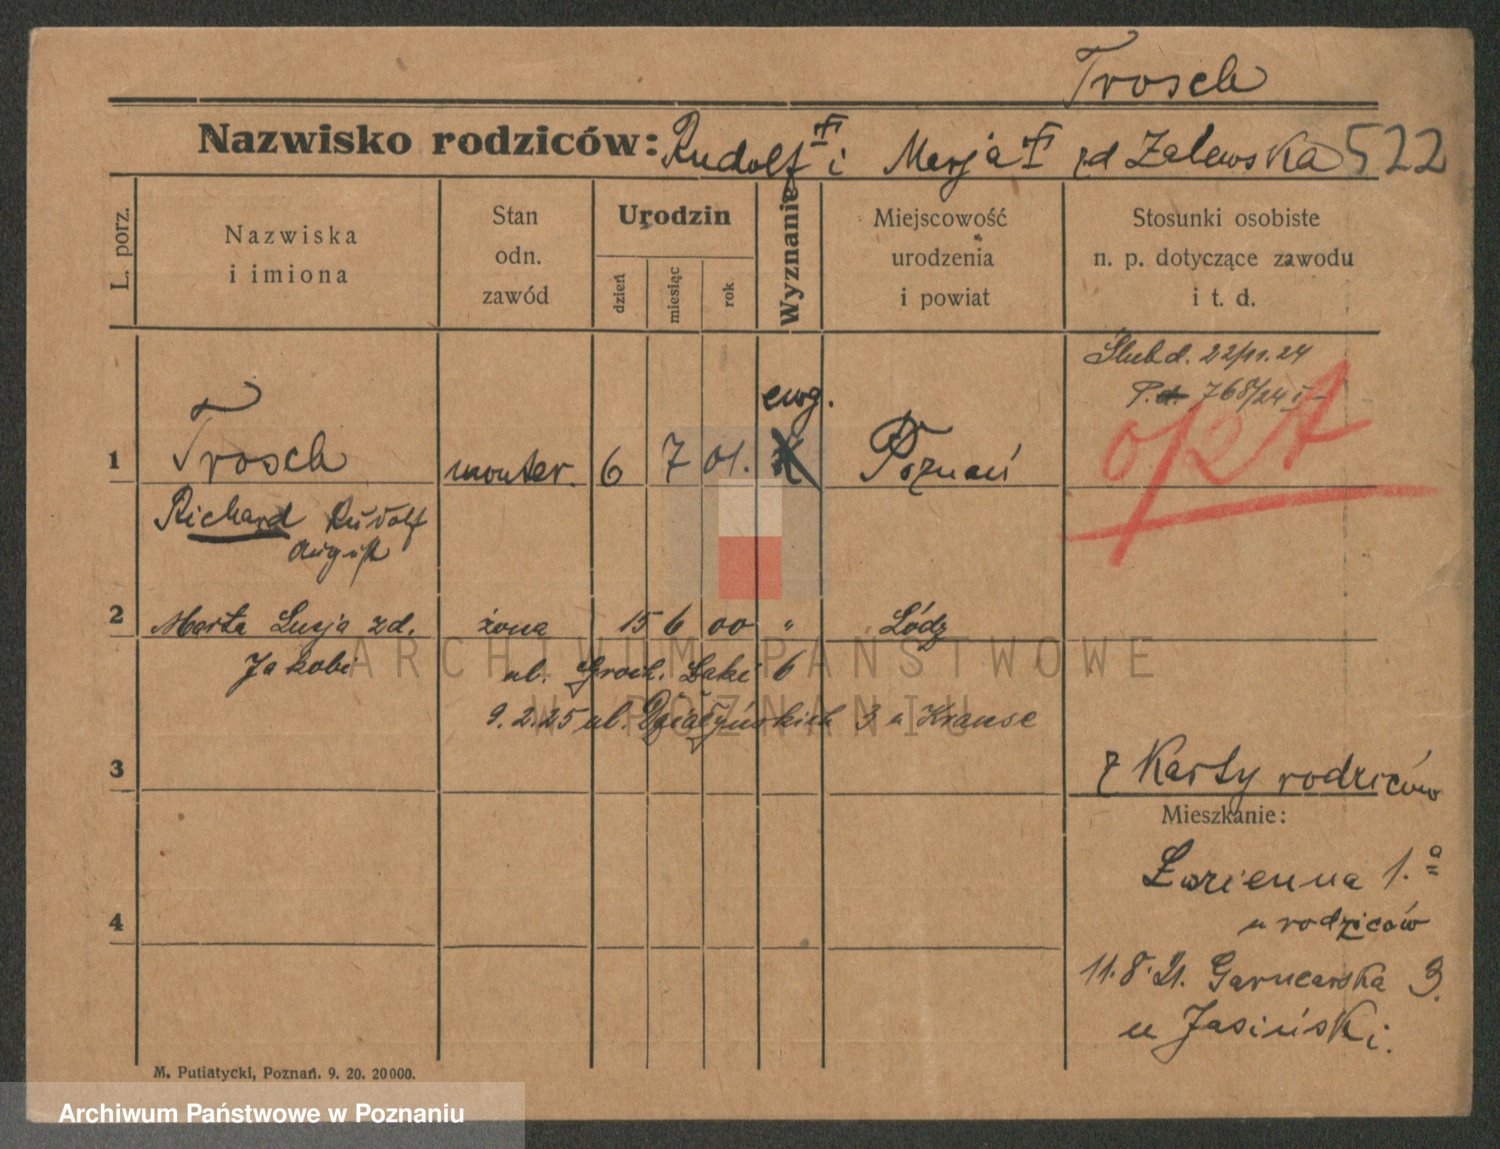 Trosch
Nazwisko rodziców: Rudolf i Marja zd Zalewska 522
L. porz.
Nazwiska
i imiona
Stan
odn.
zawód
Urodzin
dzień
miesiąc
rok
Wyznanie
Miejscowość
urodzenia
i powiat
Stosunki osobiste
n. p. dotyczące zawodu
i t. d.
Ślub d. 22/11.24
768/24
opt
ewg.
1 Trosch monter. 6 7 01. Poznań
Richard Rudolf
August
2 Marta Lucja zd. żona 15 6 00 " Łódz
Jakobi ul. Groch. Łąki 6
9.2.25 ul. Działyńskich 3 u Krause
3
z Karty rodziców
Mieszkanie:
Łazienna 1.a
u rodziców
4
11.8.21. Garncarska 3.
u Jasiński.
M. Putiatycki, Poznań. 9. 20. 20 000.
ARCHIWUM PAŃSTWOWE
W POZNANIU
Archiwum Państwowe w Poznaniu